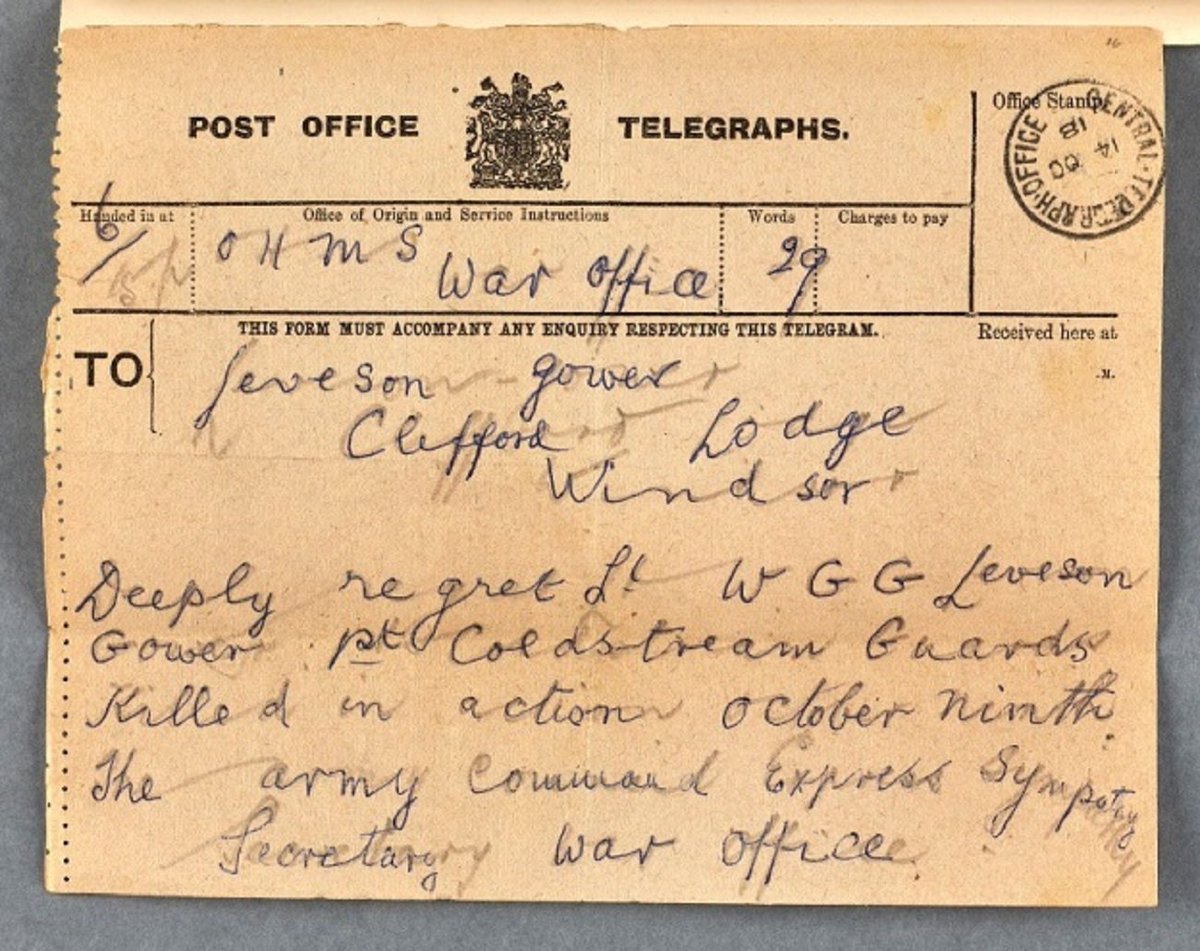 POST OFFICE TELEGRAPHS.
Office Stamp.
CENTRAL·TELEGRAPH·OFFICE
14 OC
18
Handed in at
Office of Origin and Service Instructions
Words
Charges to pay
6/
O H M S
War Office
29
THIS FORM MUST ACCOMPANY ANY ENQUIRY RESPECTING THIS TELEGRAM.
Received here at
TO
.M.
Leveson Gower
Clifford Lodge
Windsor
Deeply regret Lt W G G Leveson
Gower pt Coldstream Guards
Killed in action October ninth
The army Command Express Sympathy
Secretary War Office